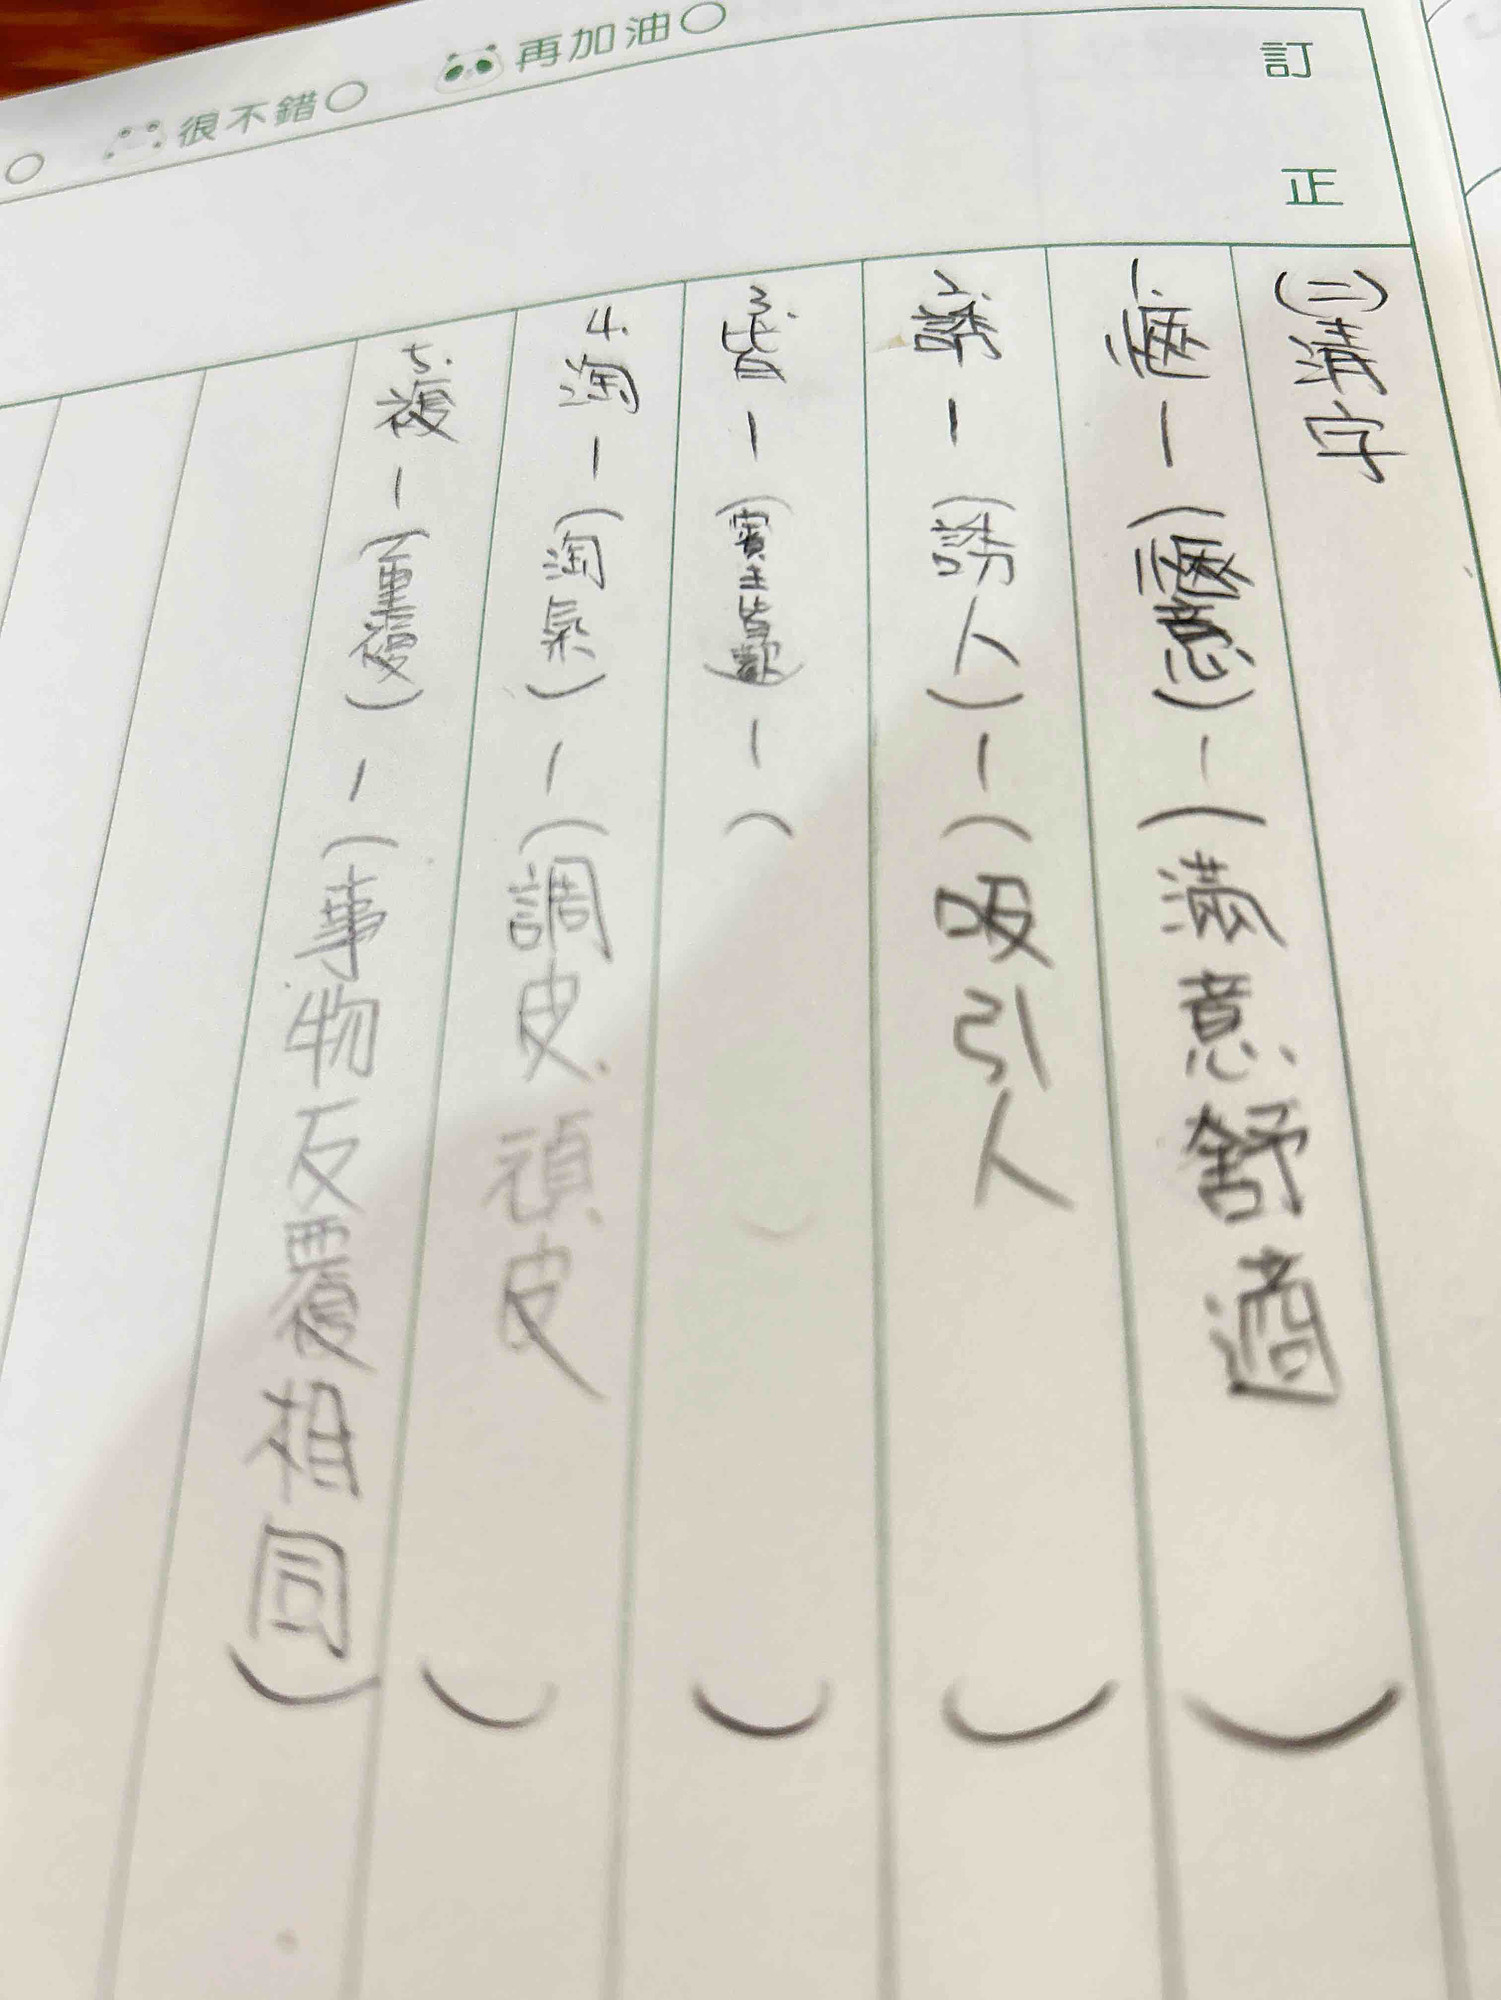 很不錯○ 再加油○
訂正
(二)清字
1.愜-(愜意)-(滿意舒適)
2.誘-(誘人)-(吸引人)
3.皆-(賓主皆歡)-( )
4.淘-(淘氣)-(調皮.頑皮)
5.複-(重複)-(事物反覆相同)